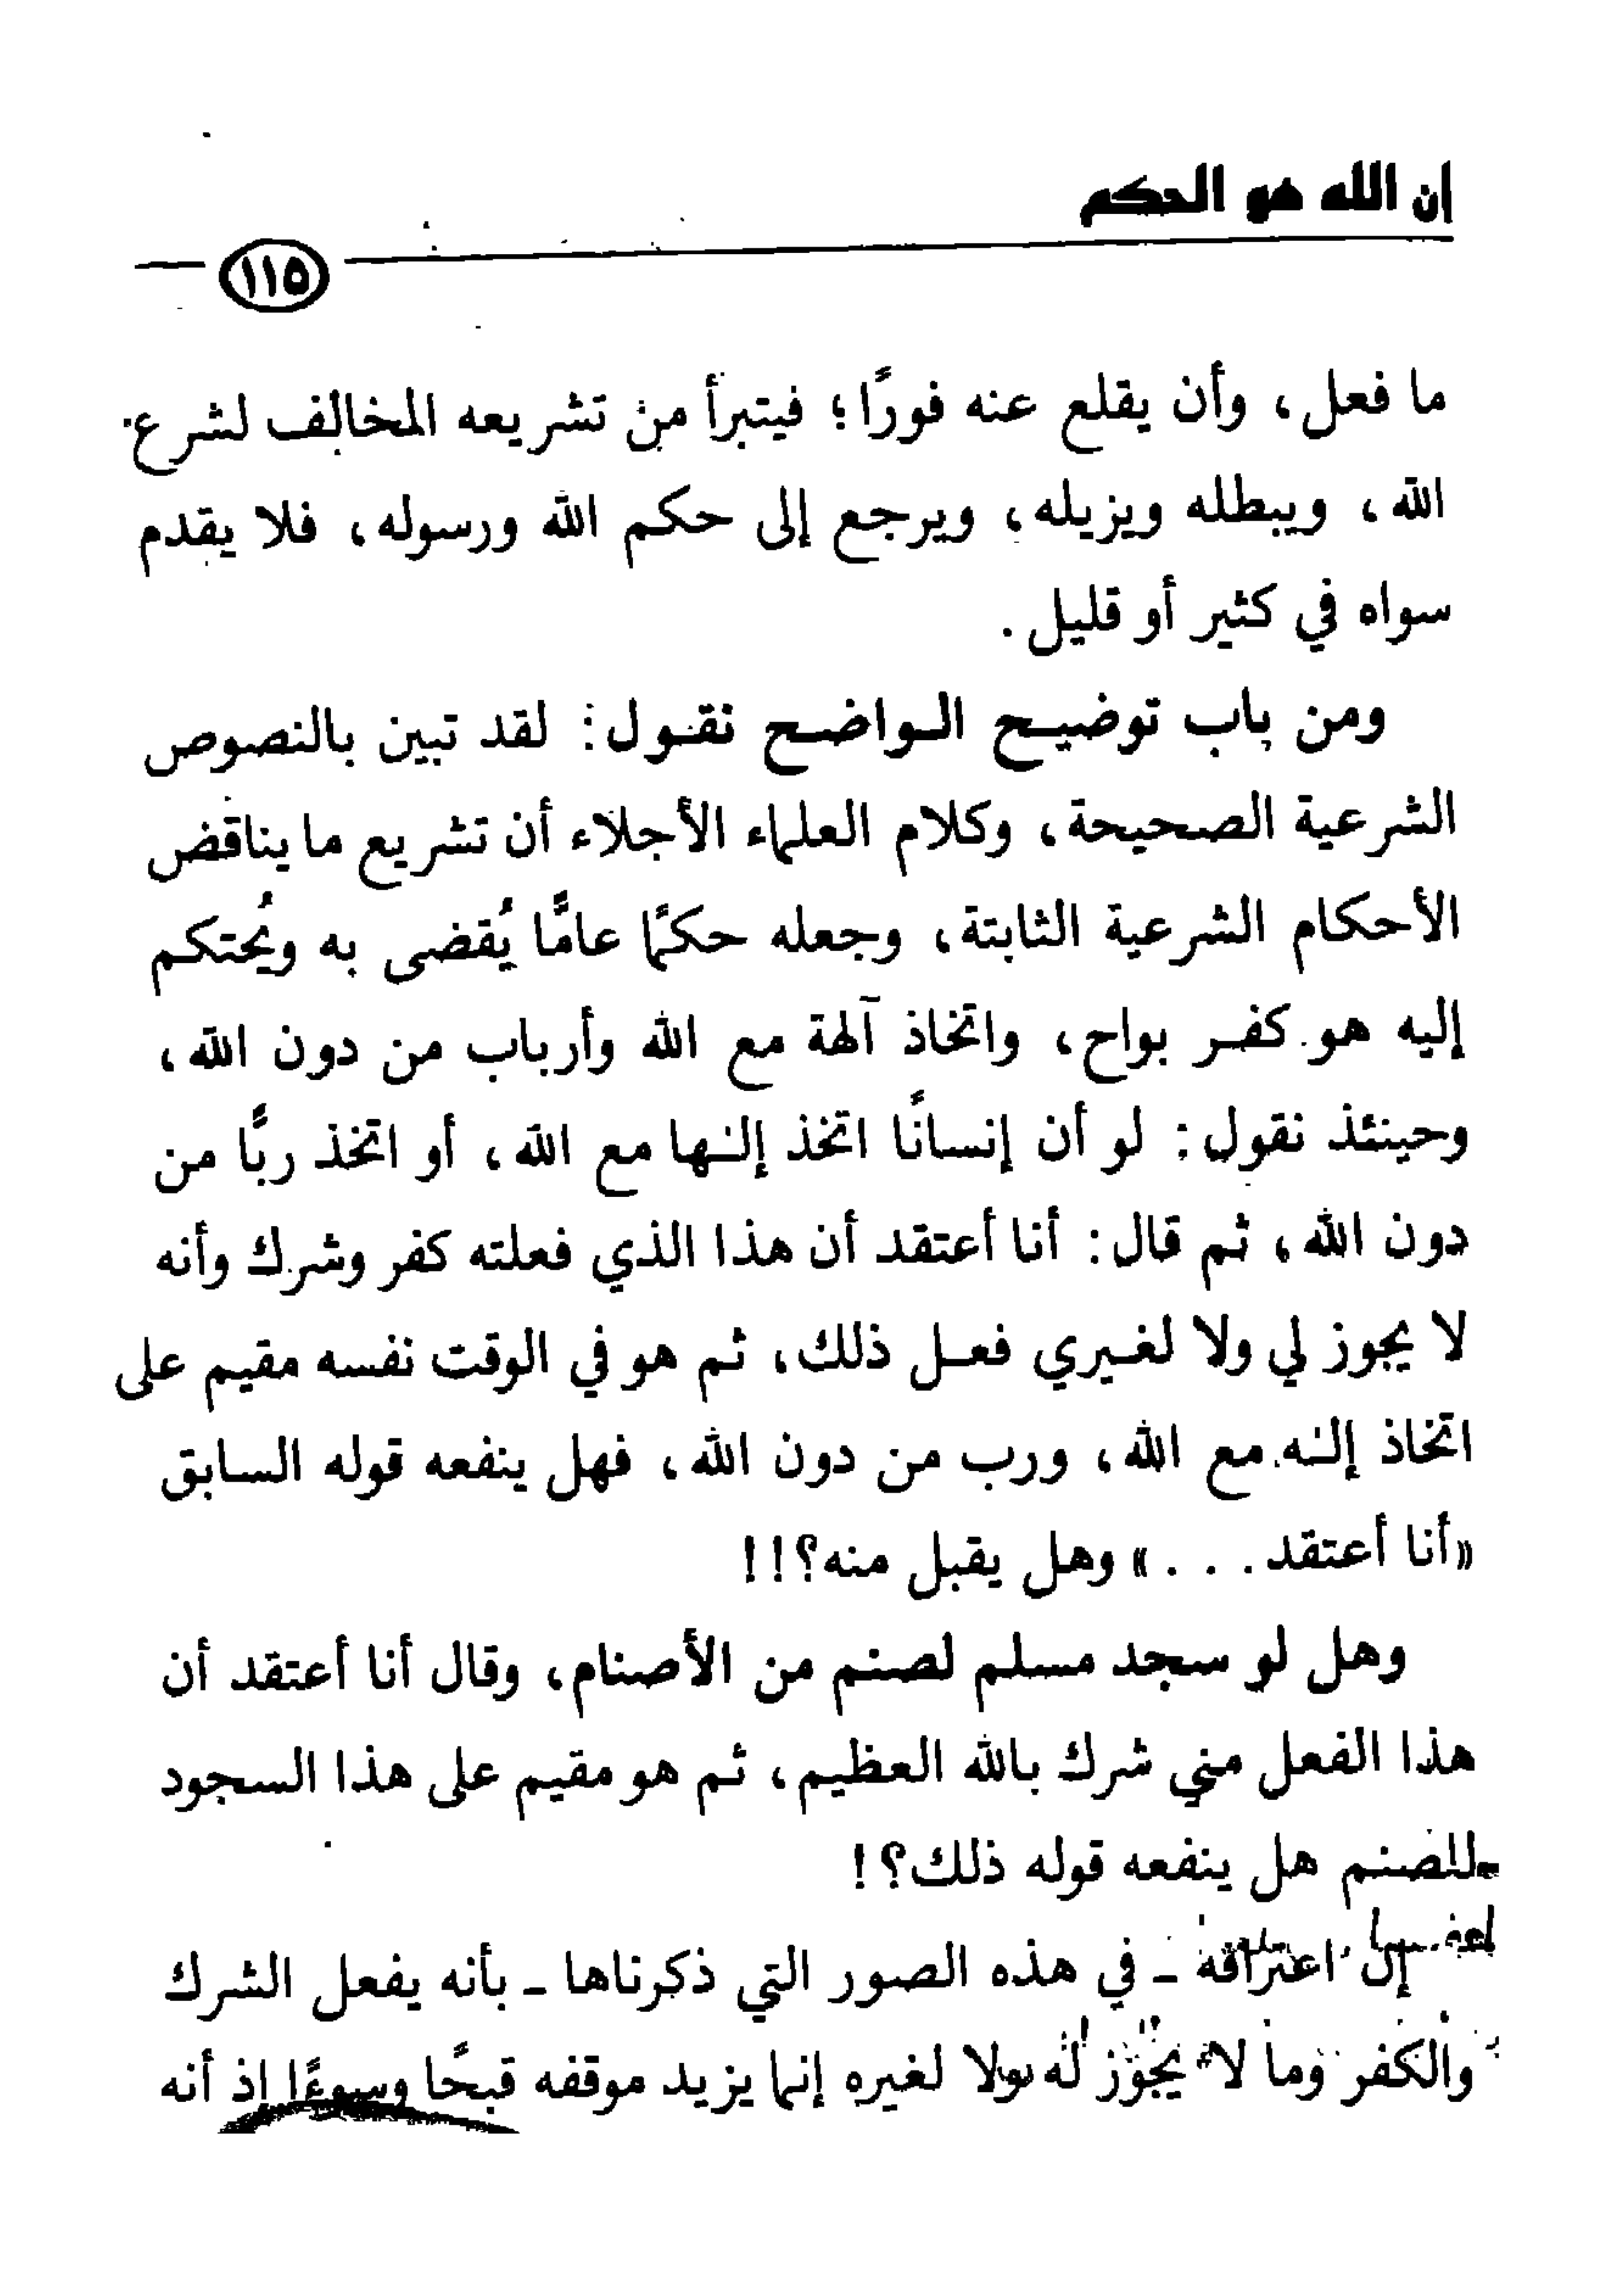 إن الله هو الحكم
١١٥
ما فعل، وأن يقلع عنه فورًا؛ فيتبرأ من تشريعه المخالف لشرع
الله، ويبطله ويزيله، ويرجع إلى حكم الله ورسوله، فلا يقدم
سواه في كثير أو قليل.
ومن باب توضيح الواضح نقول: لقد تبين بالنصوص
الشرعية الصحيحة، وكلام العلماء الأجلاء أن تشريع ما يناقض
الأحكام الشرعية الثابتة، وجعله حكمًا عامًّا يُقضى به ويُحتكم
إليه هو كفر بواح، واتخاذ آلهة مع الله وأرباب من دون الله،
وحينئذ نقول: لو أن إنسانًا اتخذ إلـٰها مع الله، أو اتخذ ربًّا من
دون الله، ثم قال: أنا أعتقد أن هذا الذي فعلته كفر وشرك وأنه
لا يجوز لي ولا لغيري فعل ذلك، ثم هو في الوقت نفسه مقيم على
اتخاذ إلـٰه مع الله، ورب من دون الله، فهل ينفعه قوله السابق
«أنا أعتقد. . . » وهل يقبل منه؟!!
وهل لو سجد مسلم لصنم من الأصنام، وقال أنا أعتقد أن
هذا الفعل مني شرك بالله العظيم، ثم هو مقيم على هذا السجود
للصنم هل ينفعه قوله ذلك؟!
إن اعترافه ـ في هذه الصور التي ذكرناها ـ بأنه يفعل الشرك
والكفر وما لا يجوز له ولا لغيره إنما يزيد موقفه قبحًا وسوءًا إذ أنه